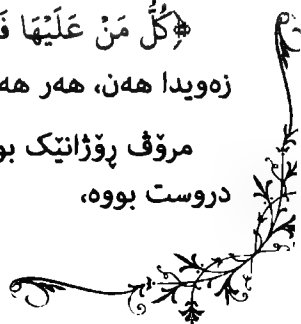 ﴿كُلُّ مَنْ عَلَيْهَا
زەویدا هەن، هەر
مرۆڤ ڕۆژانێک
دروست بووە،